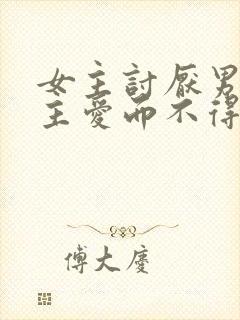 女主討厭男
主愛而不得
傅大慶